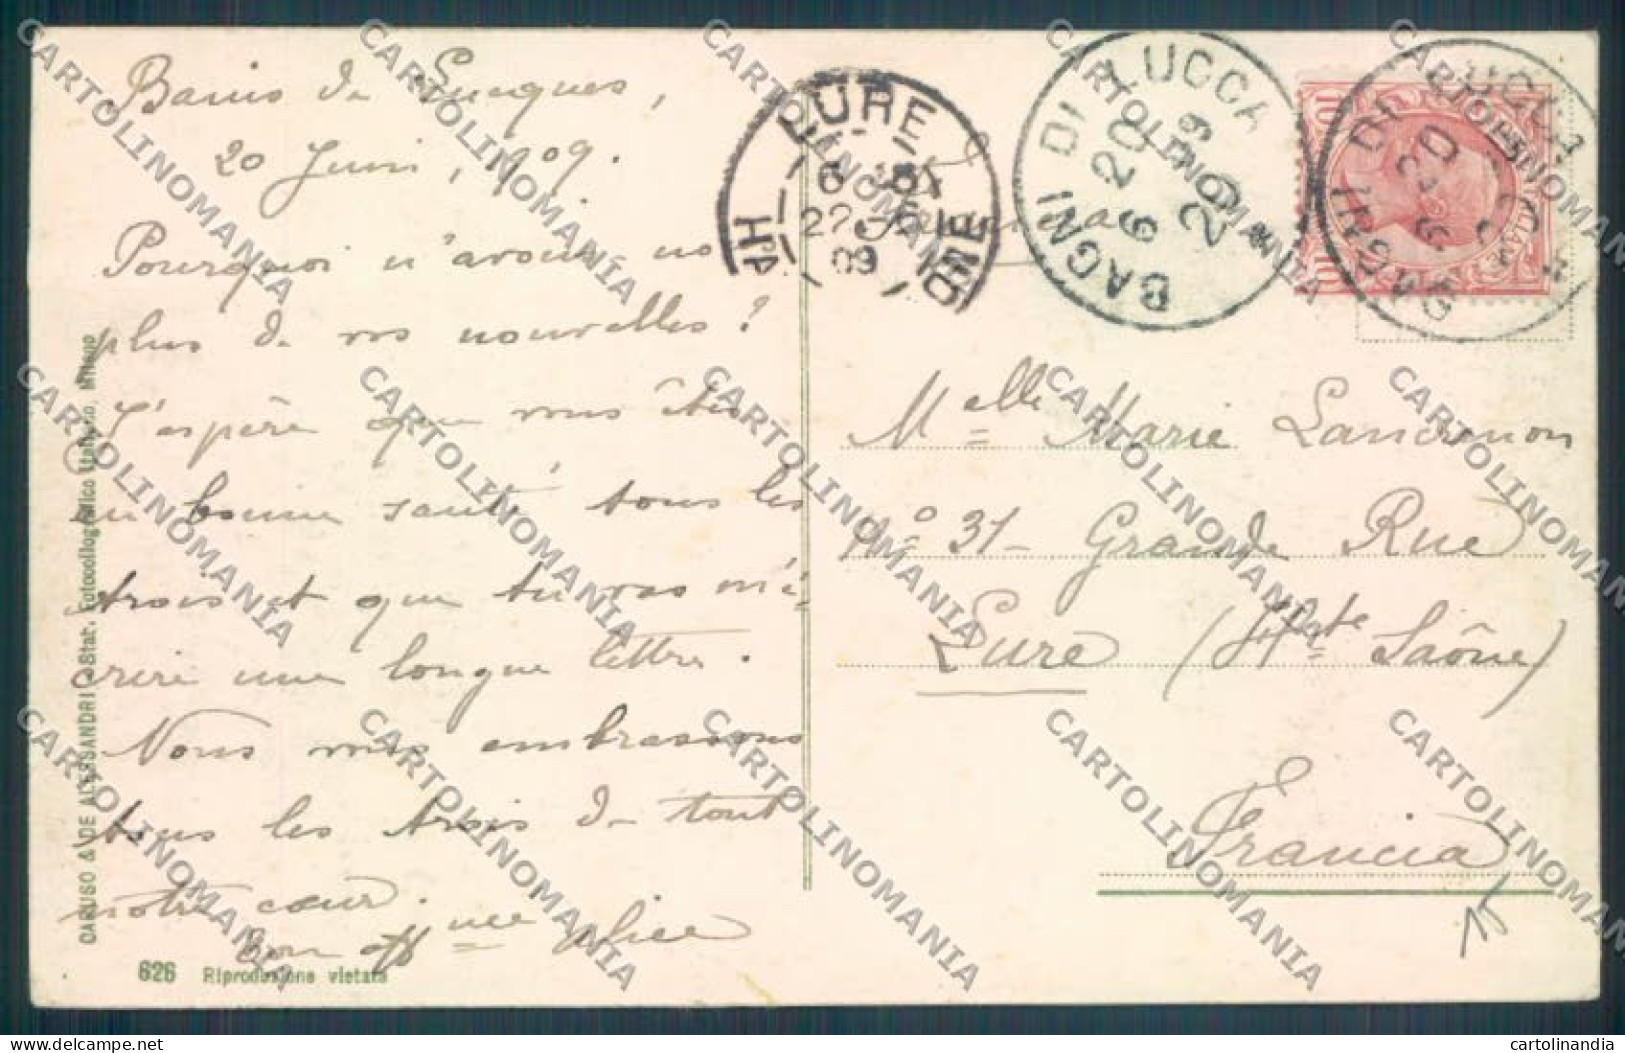 Bains de Lucques,
20 Juin, 909.
Pourquoi n'avons no
plus de vos nouvelles?
J'espère que vous êtes
en bonne santé tous les
trois et que tu vas m'é-
crire une longue lettre.
Nous vous embrassons
tous les trois de tout
notre cœur.
Ton aff née Alice
CARUSO & DE ALESSANDRI - Stat. Fotocollografico Italiano, Milano
626 Riproduzione vietata
LURE
22 - 6
09
HTE SAONE
BAGNI DI LUCCA
20 6 09
BAGNI DI LUCCA
20 6
10 10
Melle Marie Landrmon
No 31 Grande Rue
Lure (Hte Saône)
Francia
CARTOLINOMANIA
Delcampe.net
cartolinandia